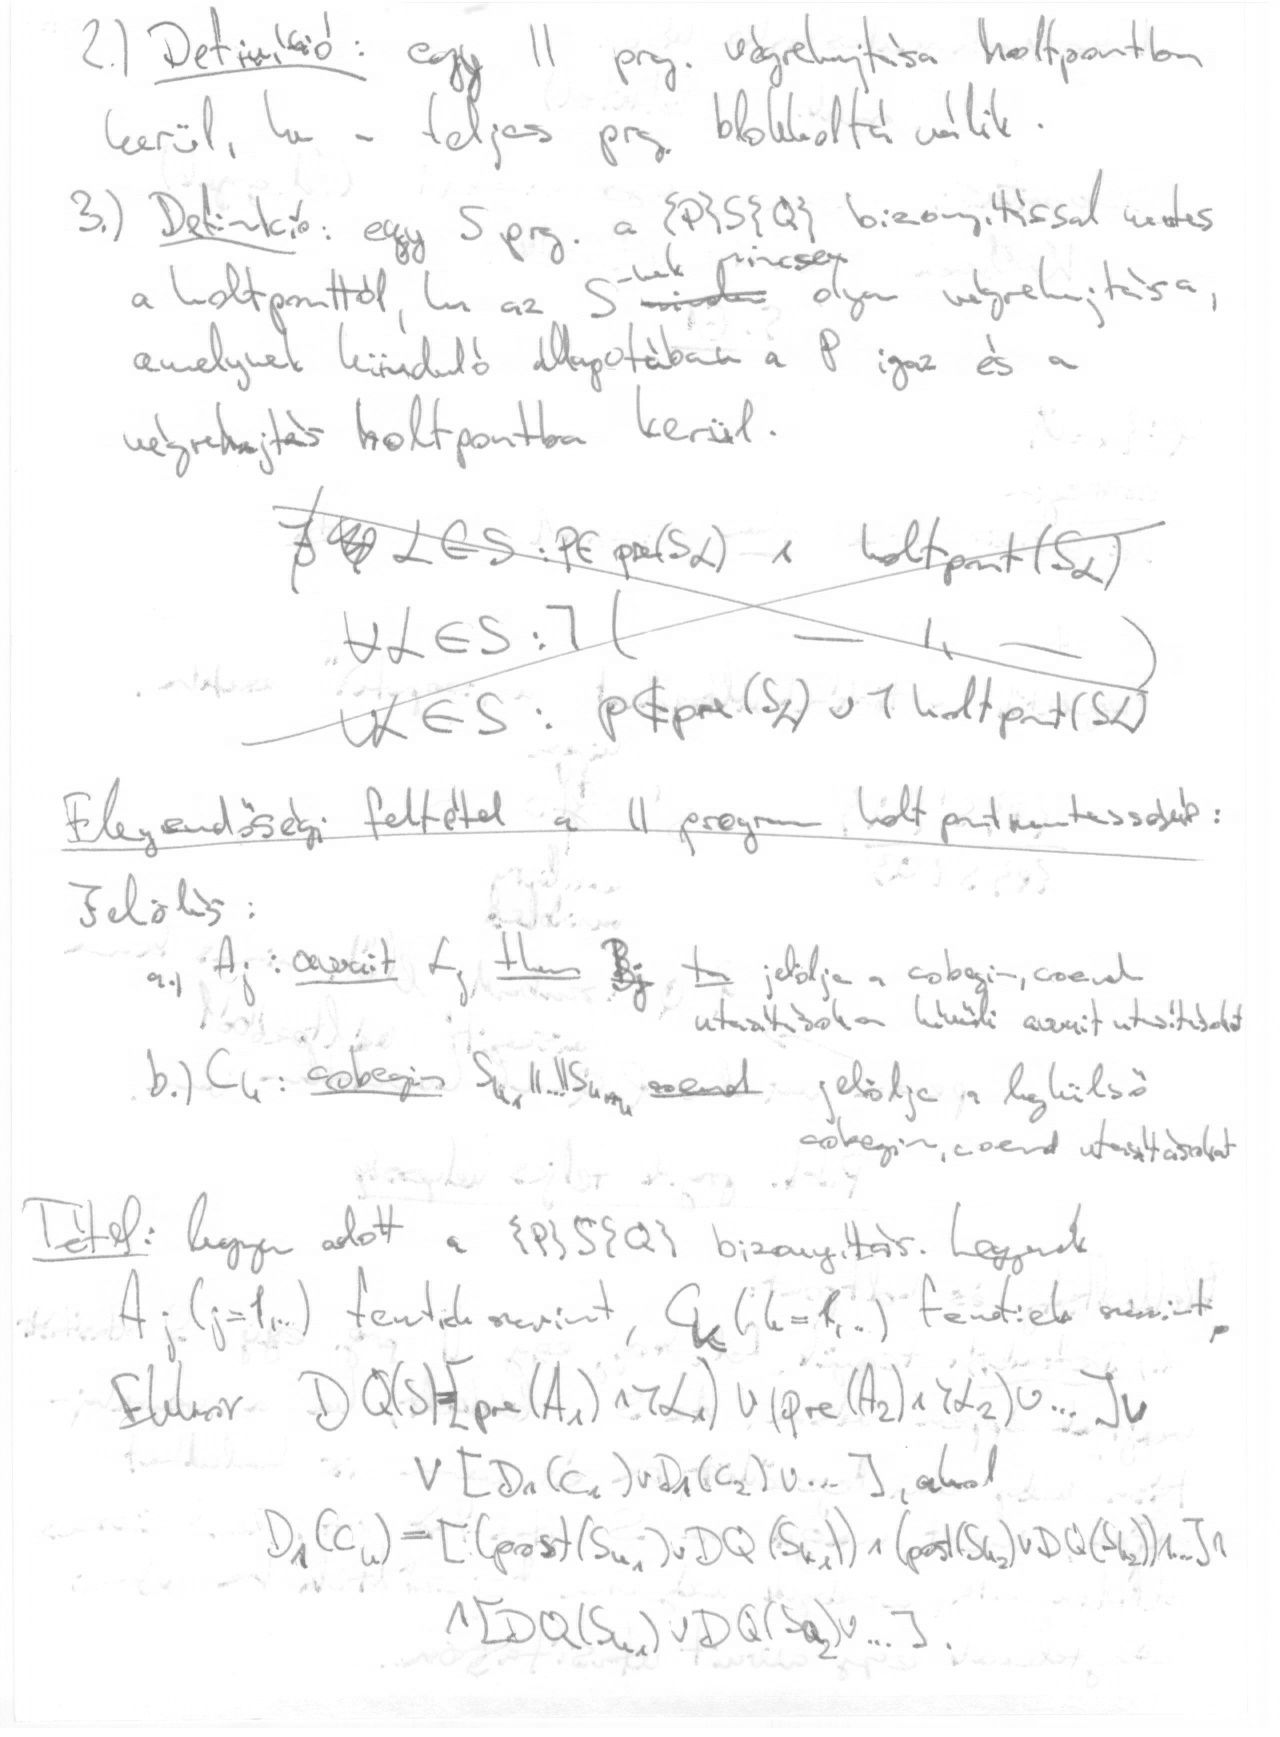 2.) Definíció: egy || prg. végrehajtása holtpontba
kerül, ha a teljes prg. blokkolttá válik.
3.) Definíció: egy S prg. a {P}S{Q} bizonyítással mentes
a holtponttól, ha az S-nek nincsen olyan végrehajtása,
amelynek kiinduló állapotában a P igaz és a
végrehajtás holtpontba kerül.
∄ α ∈ S : P ∈ pre(Sα) ∧ holtpont(Sα)
∀α ∈ S : ¬( — 〃 — )
∀α ∈ S : P ∉ pre(Sα) ∨ ¬ holtpont(Sα)
Elegendőségi feltétel a || program holtpontmentességére:
Jelölés:
a.) Aj : await αj then Bj ta jelölje a cobegin, coend
utasításokon kívüli await utasításokat
b.) Ck : cobegin Sk1 ||...|| Skmk coend jelölje a legkülső
cobegin, coend utasításokat
Tétel: legyen adott a {P}S{Q} bizonyítás. Legyenek
Aj (j=1,..) fentiek szerint, Ck (k=1,..) fentiek szerint,
Ekkor DQ(S)=[pre(A1) ∧ ¬α1) ∨ (pre(A2) ∧ ¬α2) ∨ ... ] ∨
∨ [D1(C1) ∨ D1(C2) ∨ ... ], ahol
D1(Ck) = [(post(Sk1) ∨ DQ(Sk1)) ∧ (post(Sk2) ∨ DQ(Sk2)) ∧ ...] ∧
∧ [DQ(Sk1) ∨ DQ(Sk2) ∨ ... ].